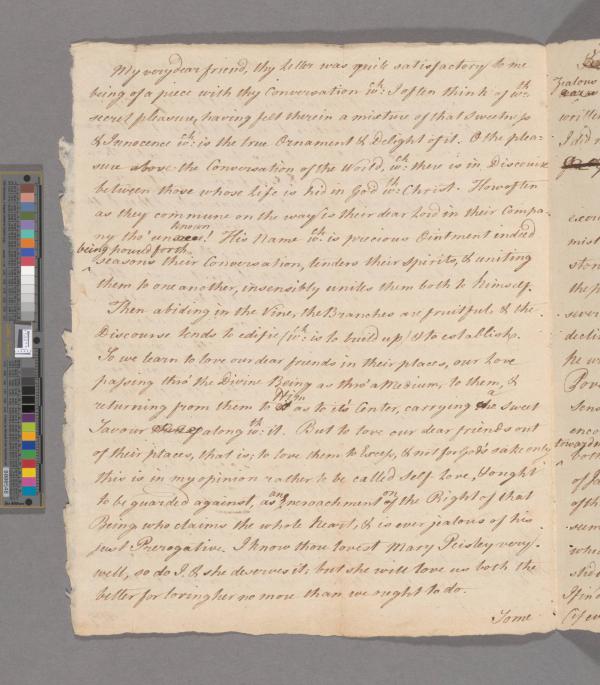 My very dear friend, thy Letter was quite satisfactory to me
being of a piece with thy Conversation wch. I often think of wth.
secret pleasure, having felt therein a mixture of that Sweetness
& Innocence wch. is the true Ornament & Delight of it. O the plea-
sure above the Conversation of the World, wch. there is in Discourse
between those whose Life is hid in God wth. Christ. How often
as they commune on the way is their dear Lord in their Compa-
known
ny tho' un ! His Name wch. is precious Ointment indeed
being poured forth
seasons their Conversation, tenders their Spirits, & uniting
them to one another, insensibly unites them both to himself.
Then abiding in the Vine, the Branches are fruitful & the
Discourse tends to edifie (wch. is to build up) & to establish.
So we learn to love our dear friends in their places, our Love
passing thro' the Divine Being as thro' a Medium, to them, &
Him a
returning from them to as to its Center, carrying the sweet
Savour along wth. it. But to love our dear friends out
of their places, that is, to love them to Excess, & not for God's sake only
this is in my opinion rather to be called Self Love, & ought
an on
to be guarded against, as Encroachment of the Right of that
Being who claims the whole heart, & is ever jealous of his
just Prerogative. I know thou lovest Mary Peisley very
well, so do I, & she deserves it, but she will love us both the
better for loving her no more than we ought to do.
Some
Zealous
written
I did